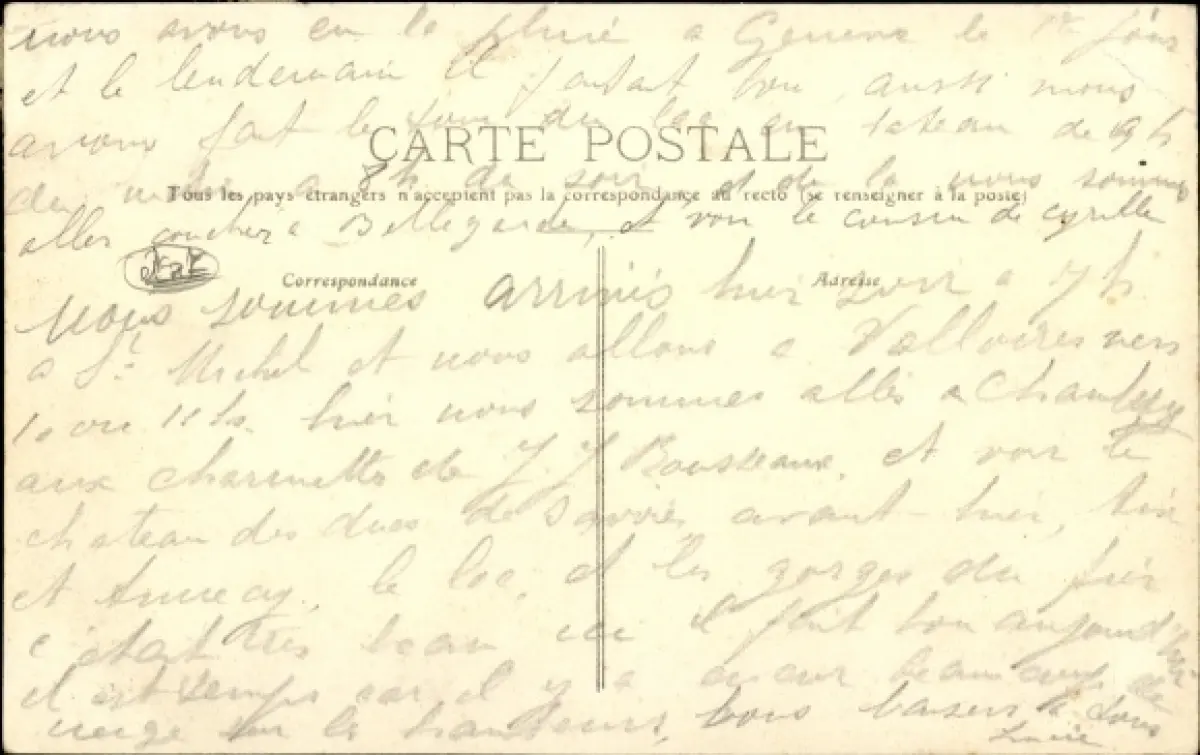 nous avons eu la pluie a Geneve le 1er jour
et le lendemain il faisait bon, aussi nous
avions fait le tour du lac en bateau de 9h
du matin a 8h du soir et de la nous sommes
allés coucher a Bellegarde, et voir le cousin de Cyrille
CARTE POSTALE
Tous les pays étrangers n'acceptent pas la correspondance au recto (se renseigner à la poste)
Correspondance
Adresse
Nous sommes arrivés hier soir a 7h
a St Michel et nous allons a Valloires vers
10 ou 11h. hier nous sommes allés a Chambery
aux charmettes de J. J Rousseaux. et voir le
chateau des ducs de Savoies, avant-hier, Aix
et Annecy, le lac, et les gorges du fier
c'etait tres beau ici il fait bon aujourd'hui
il est temps car il y a encor beaucoup de
neige sur les hauteurs, bons baisers a tous